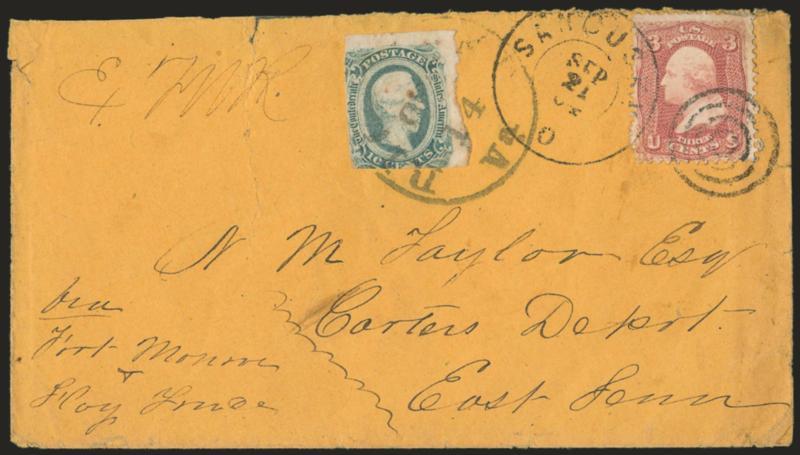 POSTAGE
The Confederate States America
10 CENTS
14
Va
SANDUSKY
SEP
21
O
3 U.S. 3
POSTAGE
U THREE S
CENTS
N M Taylor Esq
Carters Depot.
East Tenn
via
Fort Monroe
Flag Truce